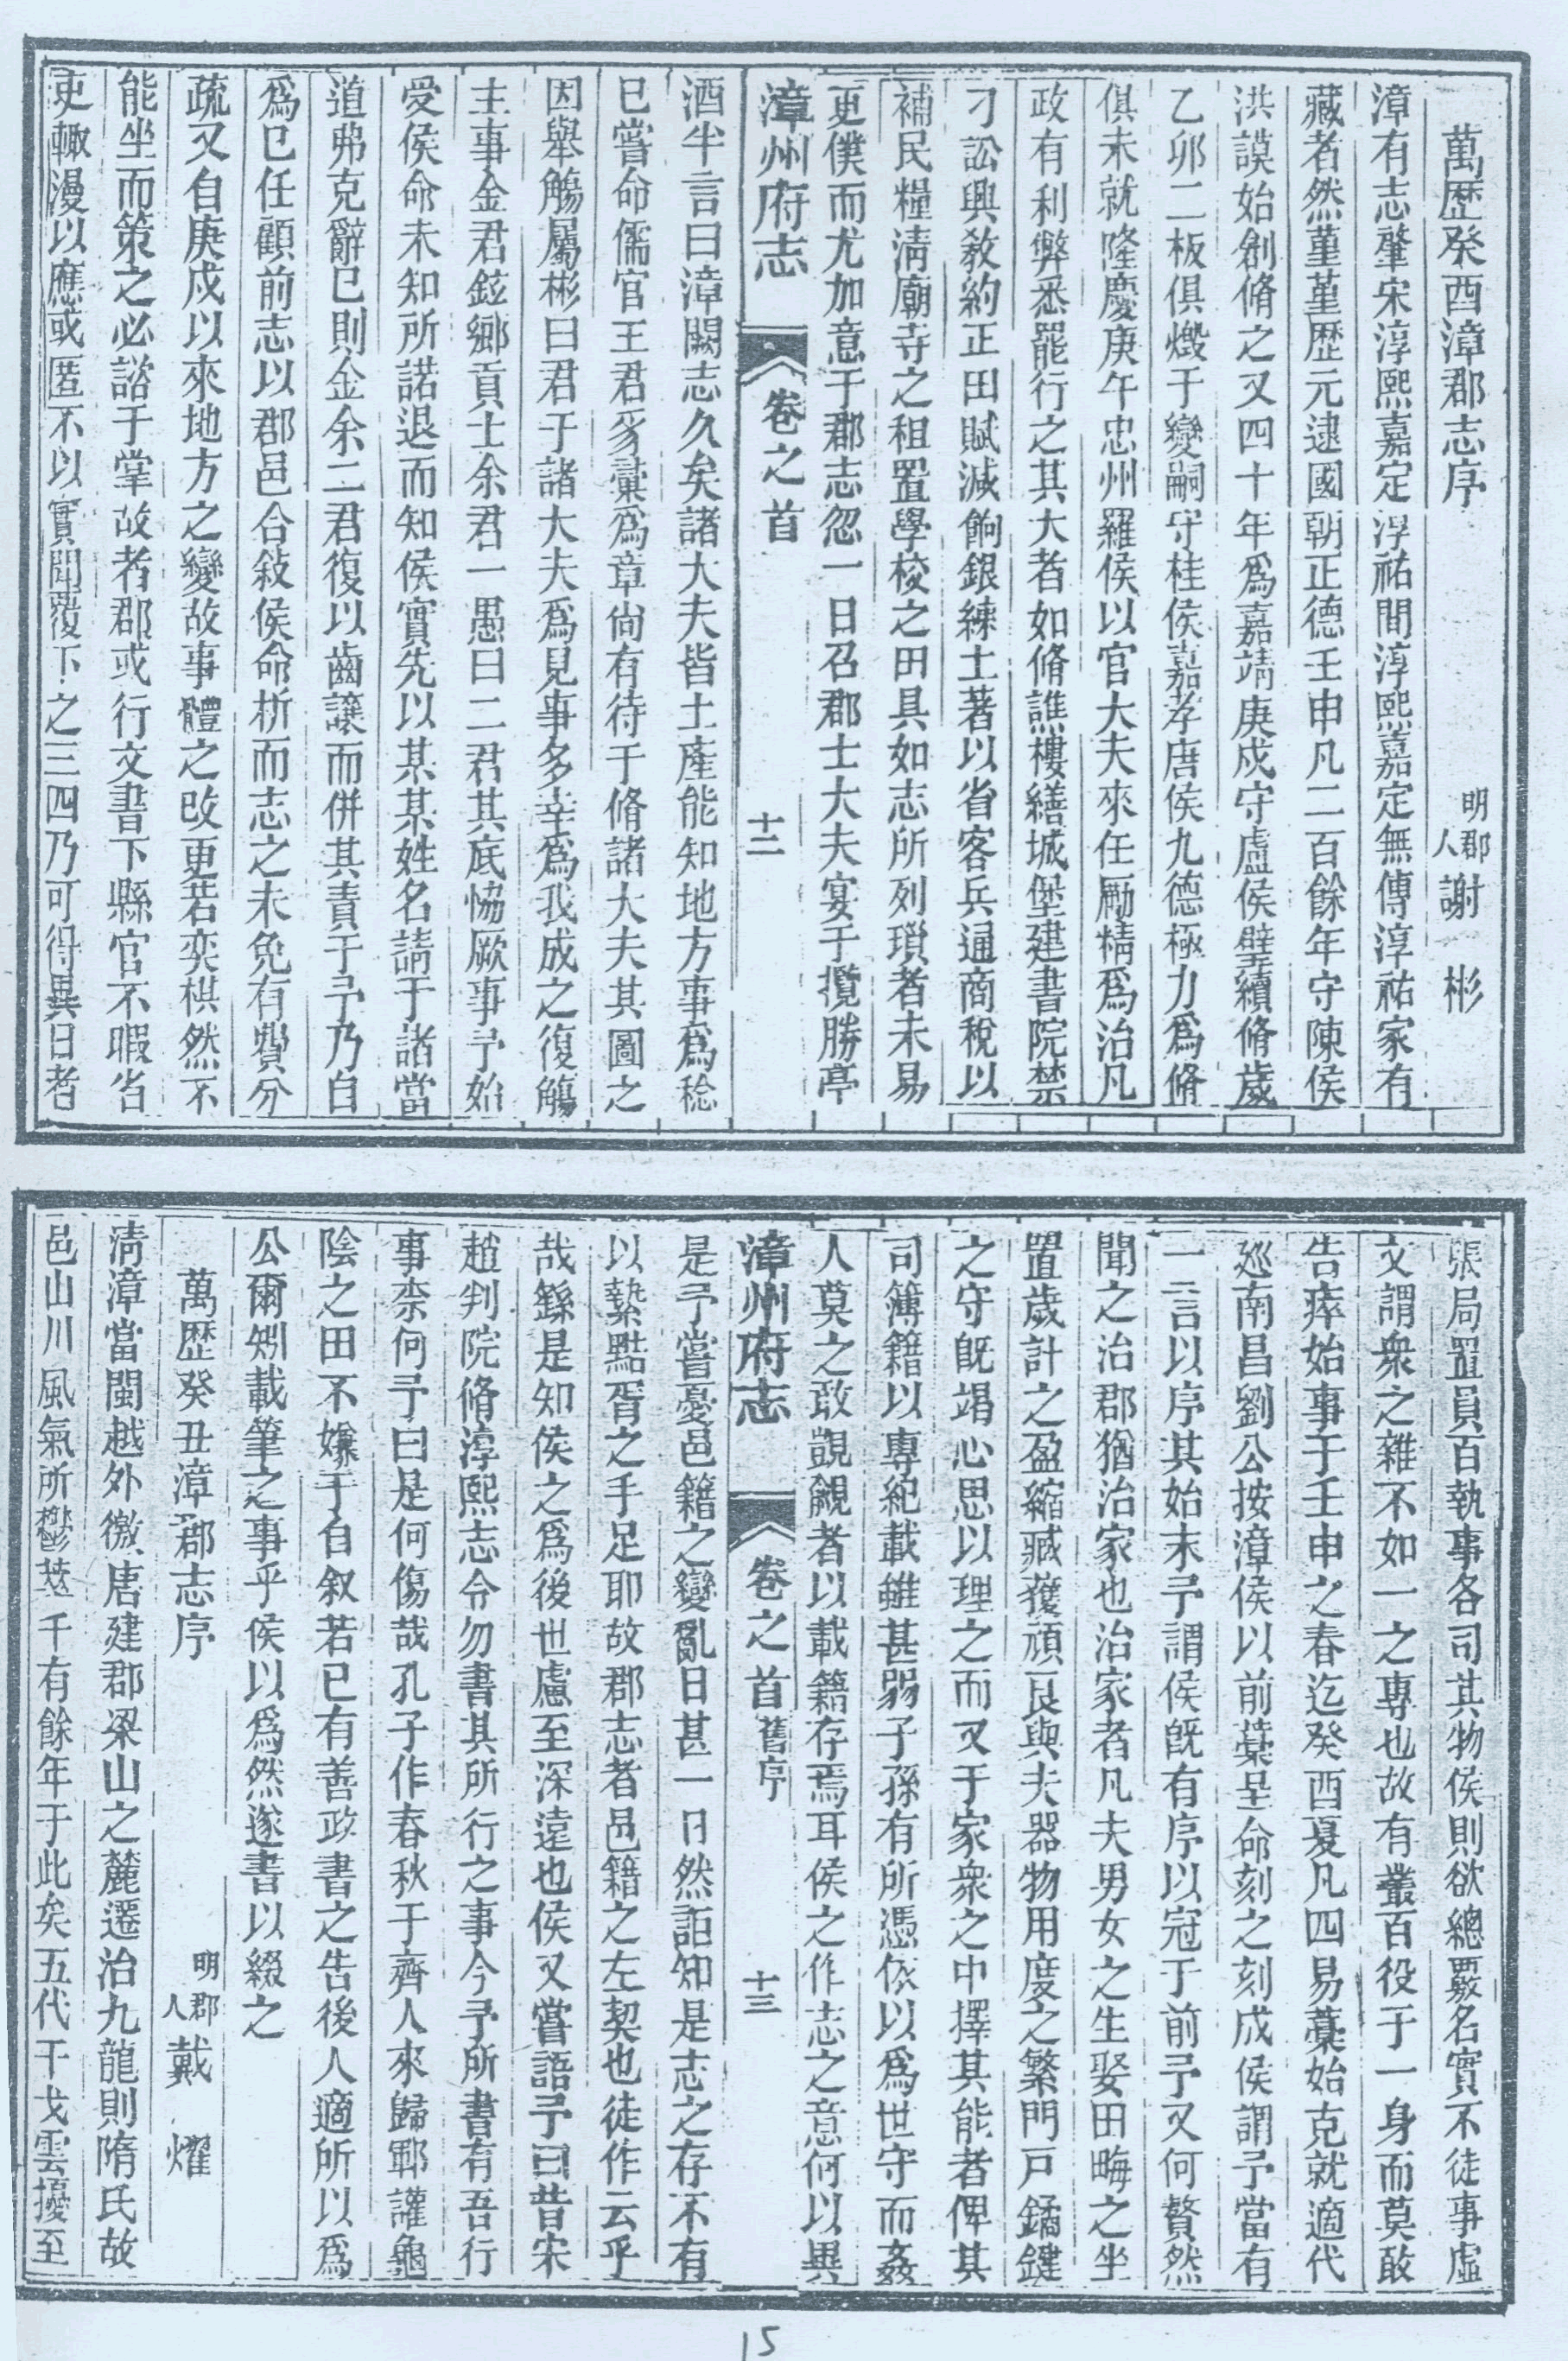 萬歷癸酉漳郡志序
明郡人謝彬
漳有志肇宋淳熙嘉定淳祐間淳熙嘉定無傳淳祐家有
藏者然蓳蓳歷元逮國朝正德壬申凡二百餘年守陳侯
洪謨始創脩之又四十年爲嘉靖庚戍守盧侯璧續脩歲
乙卯二板俱燬于變嗣守桂侯嘉孝唐侯九德極力爲脩
俱未就隆慶庚午忠州羅侯以官大夫來任勵精爲治凡
政有利弊悉罷行之其大者如脩譙樓繕城堡建書院禁
刁訟興敎約正田賦減餉銀練土著以省客兵通商稅以
補民糧淸廟寺之租置學校之田具如志所列瑣者未易
更僕而尤加意于郡志忽一日召郡士大夫宴于攬勝亭
漳州府志
卷之首
十二
酒半言曰漳闕志久矣諸大夫皆土產能知地方事爲稔
已嘗命儒官王君豸彙爲章尙有待于脩諸大夫其圖之
因舉觴屬彬曰君于諸大夫爲見事多幸爲我成之復觴
主事金君鉉鄉貢士余君一愚曰二君其底恊厥事予始
受侯命未知所諾退而知侯實先以某某姓名請于諸當
道弗克辭已則金余二君復以齒讓而併其責于予乃白
爲已任顧前志以郡邑合敍侯命析而志之未免有費分
疏又自庚戍以來地方之變故事體之改更若奕棋然不
能坐而策之必諮于掌故者郡或行文書下縣官不暇省
吏輙漫以應或匿不以實聞覆下之三四乃可得異日者
張局置員百執事各司其物侯則欲總覈名實不徒事虛
文謂衆之雜不如一之專也故有叢百役于一身而莫敢
告瘁始事于壬申之春迄癸酉夏凡四易藁始克就適代
廵南昌劉公按漳侯以前藁呈命刻之刻成侯謂予當有
一言以序其始末予謂侯旣有序以冠于前予又何贅然
聞之治郡猶治家也治家者凡夫男女之生娶田畮之坐
置歲計之盈縮臧獲頑良與夫器物用度之繁門戸鐍鍵
之守旣竭心思以理之而又于家衆之中擇其能者俾其
司簿籍以專紀載雖甚弱子孫有所憑依以爲世守而姦
人莫之敢覬覦者以載籍存焉耳侯之作志之意何以異
漳州府志
卷之首舊序
十三
是予嘗憂邑籍之變亂日甚一日然詎知是志之存不有
以縶黠胥之手足耶故郡志者邑籍之左契也徒作云乎
哉繇是知侯之爲後世慮至深遠也侯又嘗語予曰昔宋
趙判院脩淳熙志令勿書其所行之事今予所書有吾行
事柰何予曰是何傷哉孔子作春秋于齊人來歸鄆讙龜
陰之田不嫌于自叙若已有善政書之告後人適所以爲
公爾矧載筆之事乎侯以爲然遂書以綴之
萬歷癸丑漳郡志序
明郡人戴燿
淸漳當閩越外徼唐建郡梁山之麓遷治九龍則隋氏故
邑山川風氣所鬱葢千有餘年于此矣五代干戈雲擾至
15